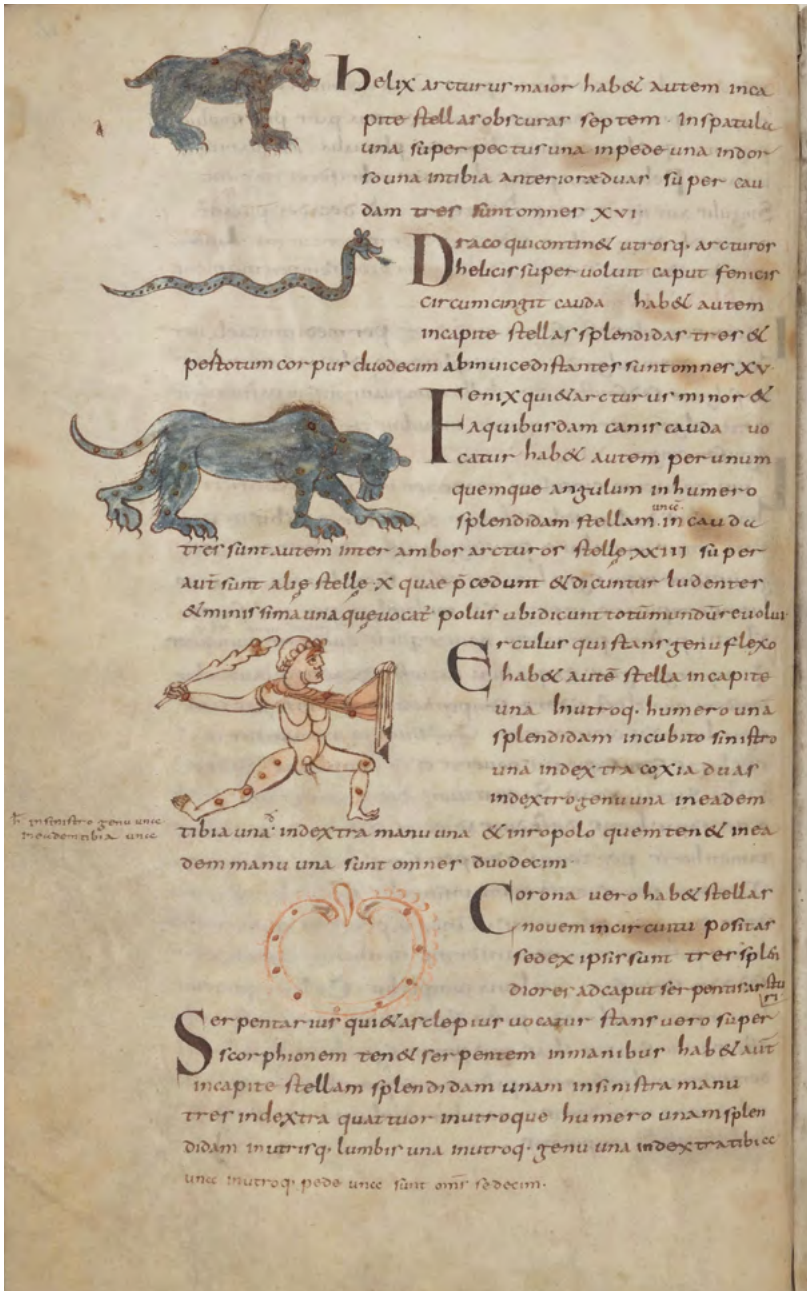 helix arcturus maior hab& autem inca
pite stellas obscuras septem · In spatula
una super pectus una in pede una in dor
so una in tibia anteriore duas super cau
dam tres sunt omnes XVI
Draco qui contin& utrosq· arcturos
helicis super voluit caput fenicis
circumcingit cauda hab& autem
in capite stellas splendidas tres &
per totum corpus duodecim ab invice distantes sunt omnes XV·
Fenix qui & arcturus minor &
a quibusdam canis cauda vo
catur hab& autem per unum
quemque angulum in humero
splendidam stellam unā· in cauda
tres sunt autem inter ambos arcturos stellę XXIII super
aut̄ sunt alię stellę X quae p̄cedunt & dicuntur ludentes
& minissima una quę vocat̄ polus ubi dicunt totū mundū revolvi
Erculus qui stans genu flexo
hab& autē stella in capite
una In utroq· humero unā
splendidam in cubito sinistro
una in dextra coxia duas
in dextro genu una in eadem
in sinistro genu una·
in eadem tibia una
tibia una· in dextra manu una & in ropolo quem ten& in ea
dem manu una sunt omnes duodecim·
Corona vero hab& stellas
novem in circuitu positas
sed ex ipsis sunt tres splēdi
diores ad caput serpentis arctu
ri
Serpentarius qui & asclepius vocatur stans vero super
scorphionem ten& serpentem in manibus hab& aut̄
in capite stellam splendidam unam in sinistra manu
tres in dextra quattuor in utroque humero unam splen
didam in utrisq· lumbis una in utroq· genu una in dextra tibia
una in utroq· pede una sunt om̄s sedecim·